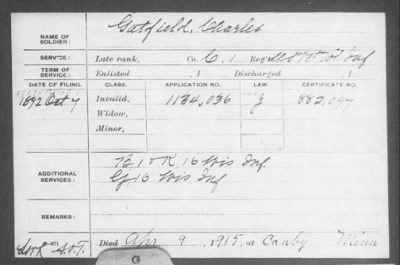 NAME OF SOLDIER: Gutfield, Charles
SERVICE: Late rank, Co. C. 1 Reg't Inf
TERM OF SERVICE: Enlisted , 1 Discharged , 1
DATE OF FILING. CLASS. APPLICATION NO. LAW. CERTIFICATE NO.
1892 Oct 7 Invalid, 1134,036 J 882,097
Widow,
Minor,
ADDITIONAL SERVICES: B, & K, 16 Wis Inf
G 16 Wis Inf
REMARKS:
Died Apr 9, 1915, at Canby Minn
G